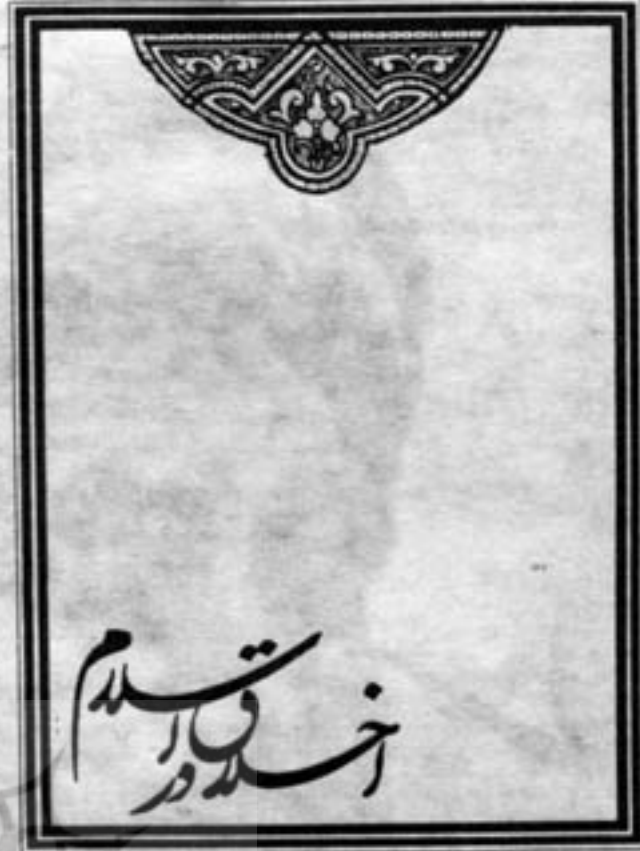 اخلاق در اسلام